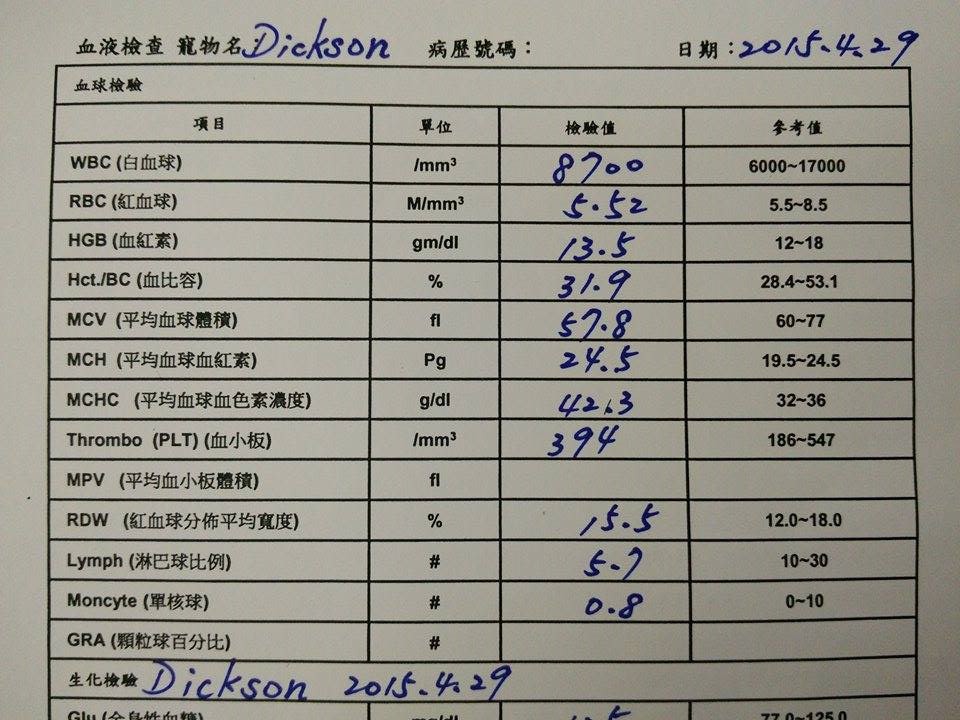 血液檢查 寵物名:Dickson 病歷號碼: 日期:2015.4.29
血球檢驗
項目 單位 檢驗值 參考值
WBC (白血球) /mm³ 8700 6000~17000
RBC (紅血球) M/mm³ 5.52 5.5~8.5
HGB (血紅素) gm/dl 13.5 12~18
Hct./BC (血比容) % 31.9 28.4~53.1
MCV (平均血球體積) fl 57.8 60~77
MCH (平均血球血紅素) Pg 24.5 19.5~24.5
MCHC (平均血球血色素濃度) g/dl 42.3 32~36
Thrombo (PLT) (血小板) /mm³ 394 186~547
MPV (平均血小板體積) fl
RDW (紅血球分佈平均寬度) % 15.5 12.0~18.0
Lymph (淋巴球比例) # 5.7 10~30
Moncyte (單核球) # 0.8 0~10
GRA (顆粒球百分比) #
生化檢驗 Dickson 2015.4.29
Glu mg/dl 77.0~125.0